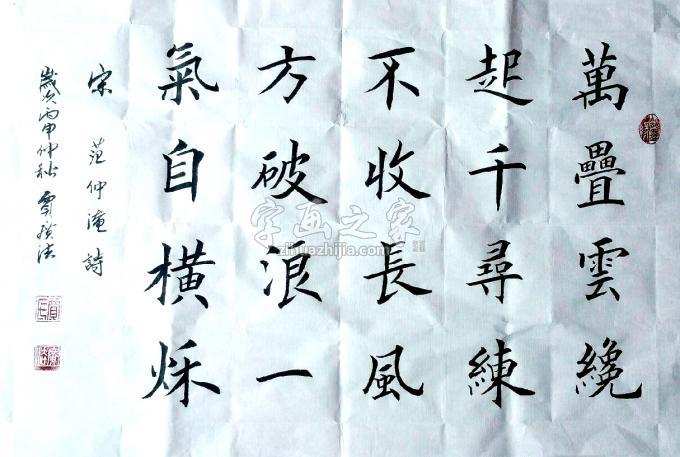 萬疊雲纔
起千尋練
不收長風
方破浪一
氣自橫秌
宋 范仲淹詩
歲次丙申仲秋
字画之家
zihuazhijia.com